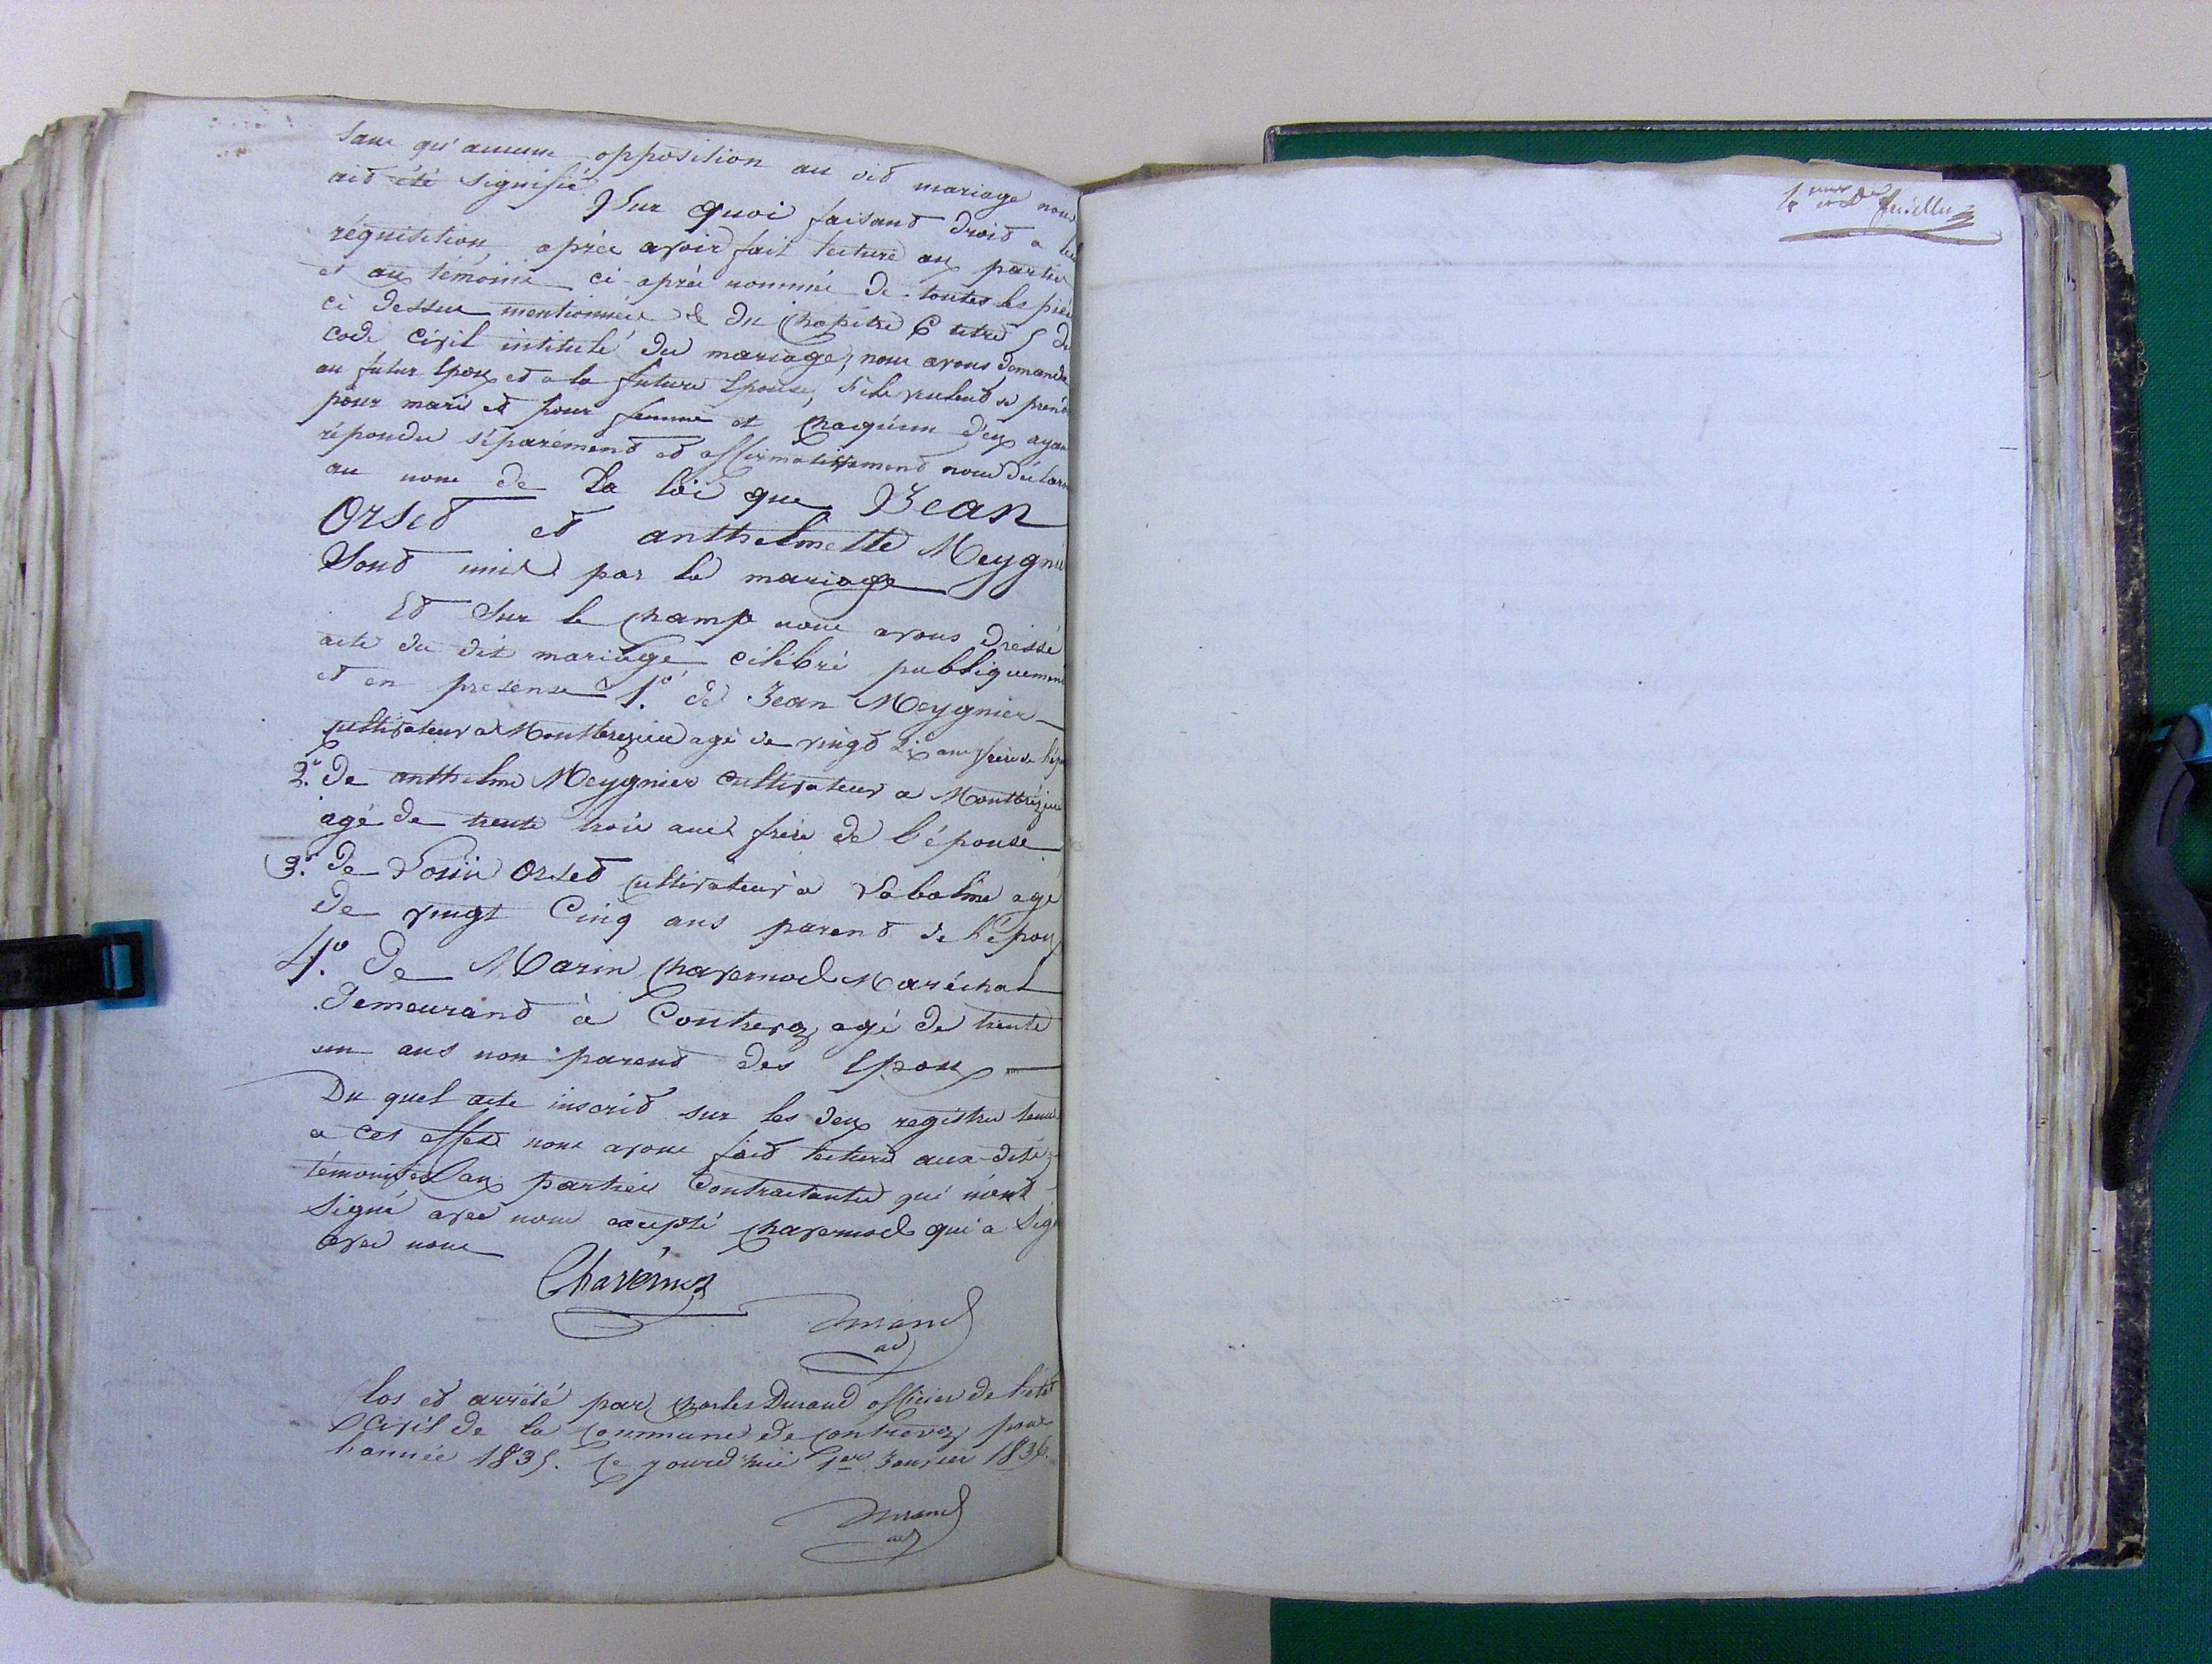 sans qu'aucune opposition au dit mariage nous
ait été signifié
Sur quoi faisant droit a leur
réquisition, après avoir fait lecture aux parties
et aux témoins ci-après nommés de toutes les pièc
ci dessus mentionnées & du Chapitre 6 titre 5 du
code Civil intitulé du mariage, nous avons demandé
au futur Epoux et a la future Epouse, s'ils veulent se prend
pour mari et pour femme et chaqu'un d'eux ayan
répondu séparément et affirmativement nous déclaro
au nom de La loi que Jean
Orset et anthelmette Meygnie
Sont unis par le mariage
Et Sur le Champ nous avons dressé
acte du dit mariage célébré publiquement
et en presence 1.° de Jean Meygnier
Cultivateur a Montbrezieu agé de vingt six ans frère de l'épo
2.° de anthelme Meygnier Cultivateur a Montbrézieu
agé de trente trois ans frère de l'épouse
3.° de Orset Cultivateur a Labalme agé
de vingt Cinq ans parent de l'époux
4.° De Marin Chavernod Maréchal
demeurant à Contrevoz agé de trente
un ans non parent des Epoux
Du quel acte inscrit sur les deux registres tenus
a ces effets nous avons fait lecture aux-dits
témoins et aux parties Contractantes qui n'ont
signé avec nous excepté Chavernod qui a Sig
avec nous
Chavernod
Durand
ad
Clos et arrêté par Charles Durand officier de l'etat
Civil de la Commune de Contrevoz pour
l'année 1835. Ce jourd'hui 1er Janvier 1836.
Durand
ad
feuillet